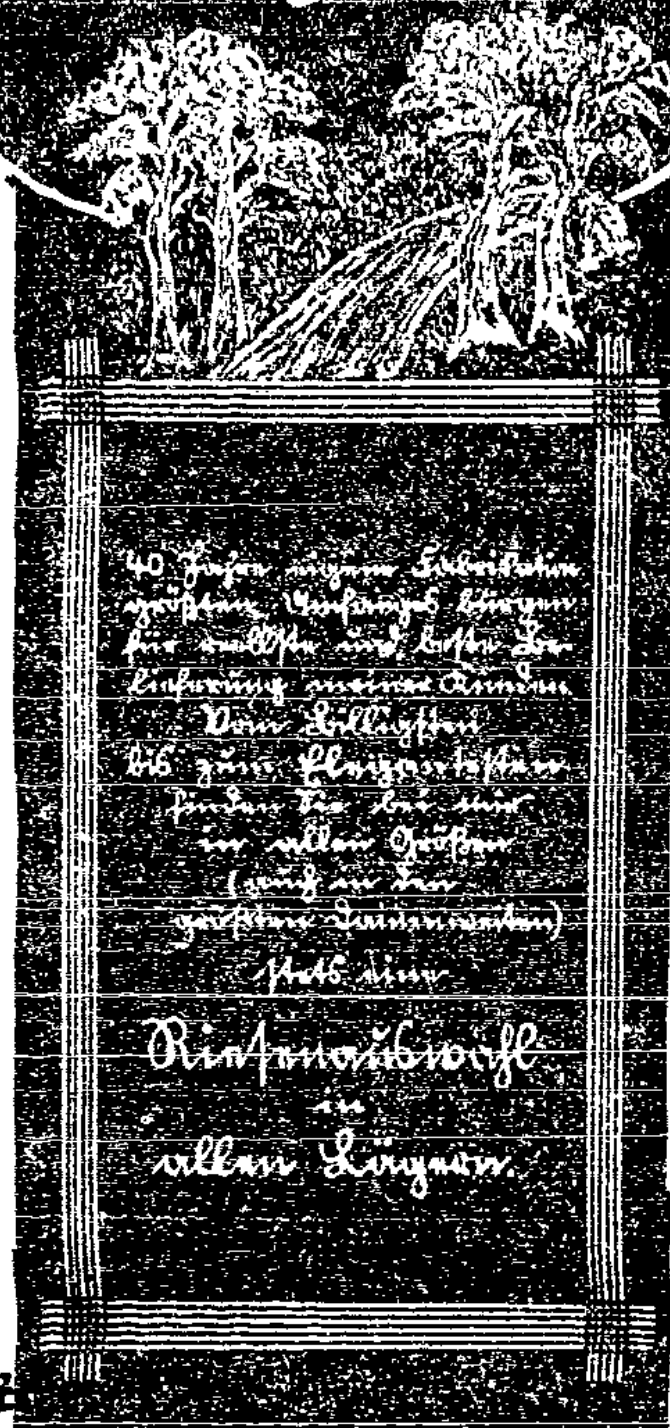 40 Jahre eigene Fabrikation
größten Umfanges bürgen
für reellste und beste Be-
lieferung meiner Kunden.
Vom Billigsten
bis zum Elegantesten
finden Sie bei mir
in allen Größen
(auch in den
größten Damenweiten)
stets eine
Riesenauswahl
in
allen Lägern.